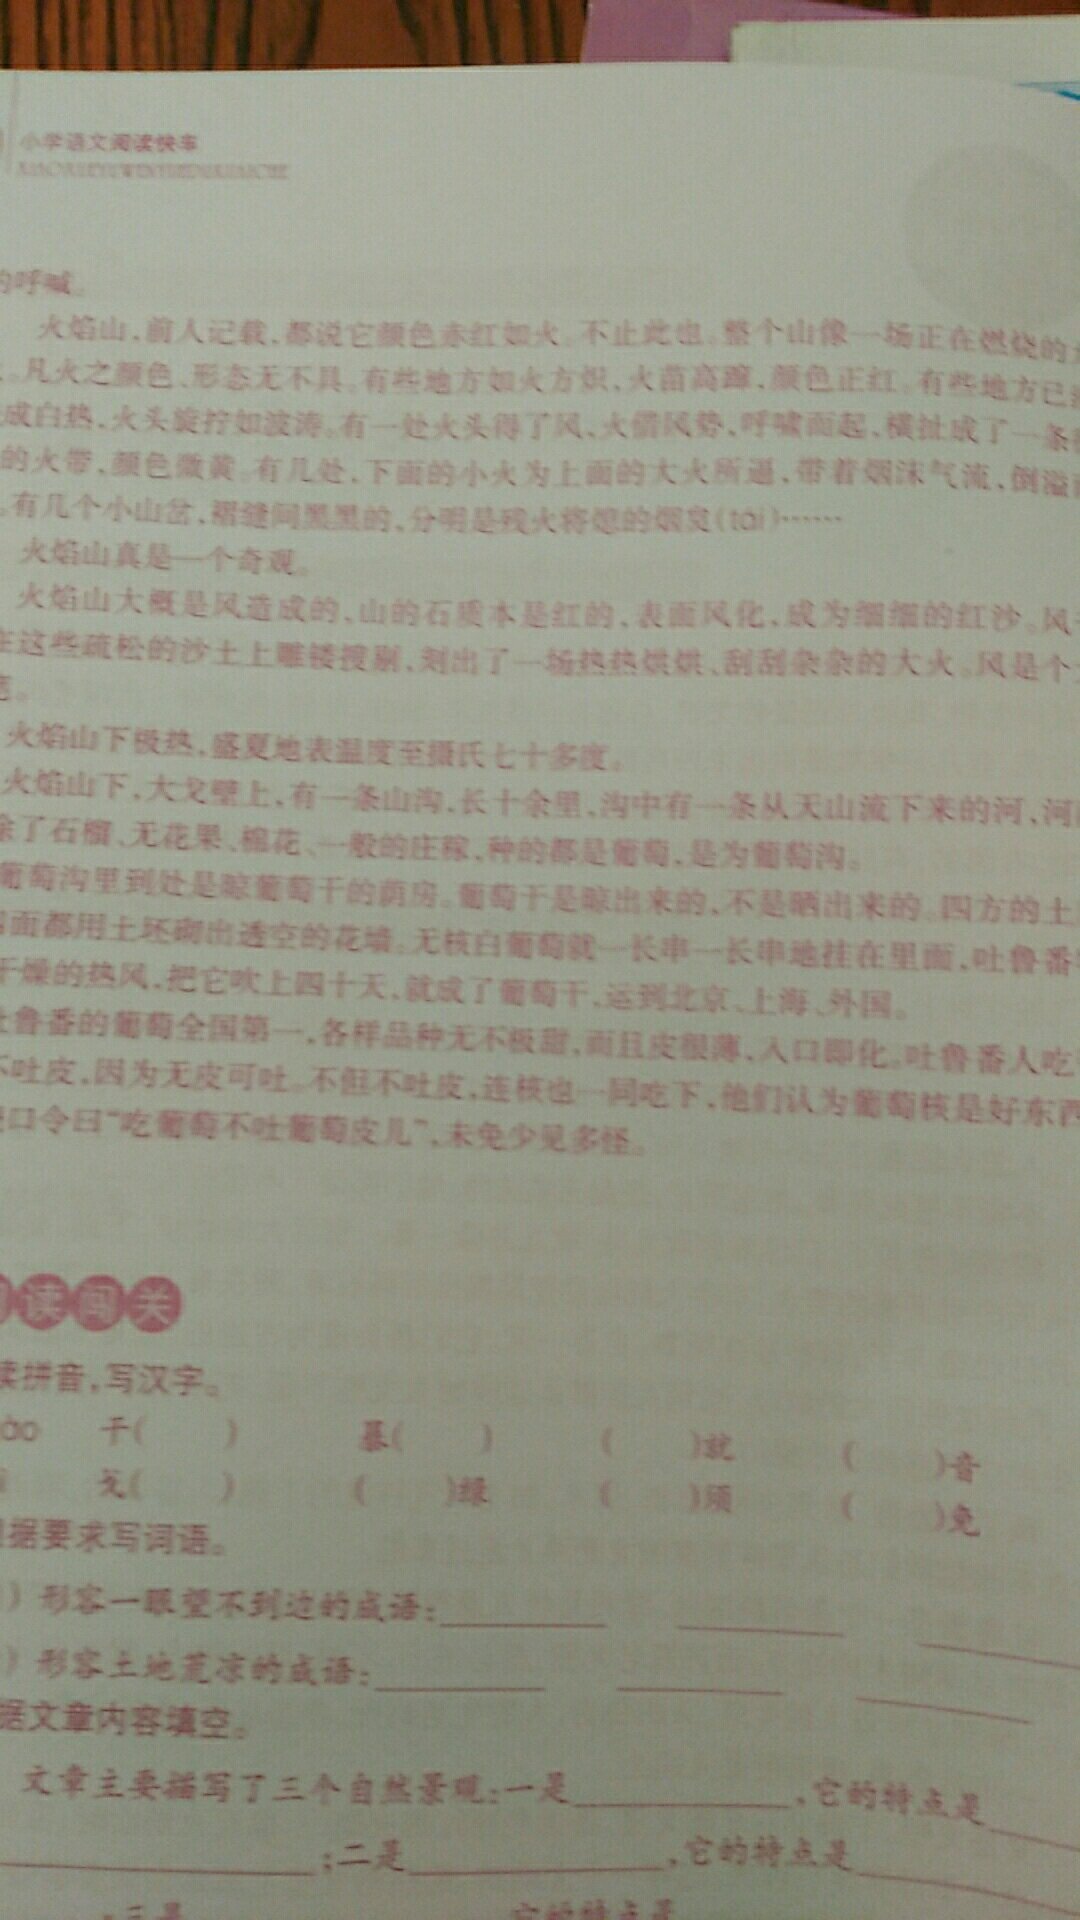 小学语文阅读快车
的呼喊。
火焰山,前人记载,都说它颜色赤红如火。不止此也。整个山像一场正在燃烧的
。凡火之颜色、形态无不具。有些地方如火方炽,火苗高蹿,颜色正红。有些地方已
成白热,火头旋拧如波涛。有一处火头得了风,火借风势,呼啸而起,横扯成了一条
的火带,颜色微黄。有几处,下面的小火为上面的大火所逼,带着烟沫气流,倒溢
。有几个小山岔,褶缝间黑黑的,分明是残火将熄的烟炱(tái)……
火焰山真是一个奇观。
火焰山大概是风造成的,山的石质本是红的,表面风化,成为细细的红沙。风
在这些疏松的沙土上雕镂搜剔,刻出了一场热热烘烘、刮刮杂杂的大火。风是个
火焰山下极热,盛夏地表温度至摄氏七十多度。
火焰山下,大戈壁上,有一条山沟,长十余里,沟中有一条从天山流下来的河,河
除了石榴、无花果、棉花、一般的庄稼,种的都是葡萄,是为葡萄沟。
葡萄沟里到处是晾葡萄干的荫房。葡萄干是晾出来的,不是晒出来的。四方的土
面都用土坯砌出透空的花墙。无核白葡萄就一长串一长串地挂在里面,吐鲁番
干燥的热风,把它吹上四十天,就成了葡萄干,运到北京、上海、外国。
吐鲁番的葡萄全国第一,各样品种无不极甜,而且皮很薄,入口即化。吐鲁番人吃
不吐皮,因为无皮可吐。不但不吐皮,连核也一同吃下,他们认为葡萄核是好东西
口令曰“吃葡萄不吐葡萄皮儿”,未免少见多怪。
读闯关
读拼音,写汉字。
ào 干( ) 暴( ) ( )就 ( )音
戈( ) ( )绿 ( )须 ( )免
据要求写词语。
)形容一眼望不到边的成语:
)形容土地荒凉的成语:
据文章内容填空。
文章主要描写了三个自然景观:一是 ,它的特点是
;二是 ,它的特点是
;三是 ,它的特点是